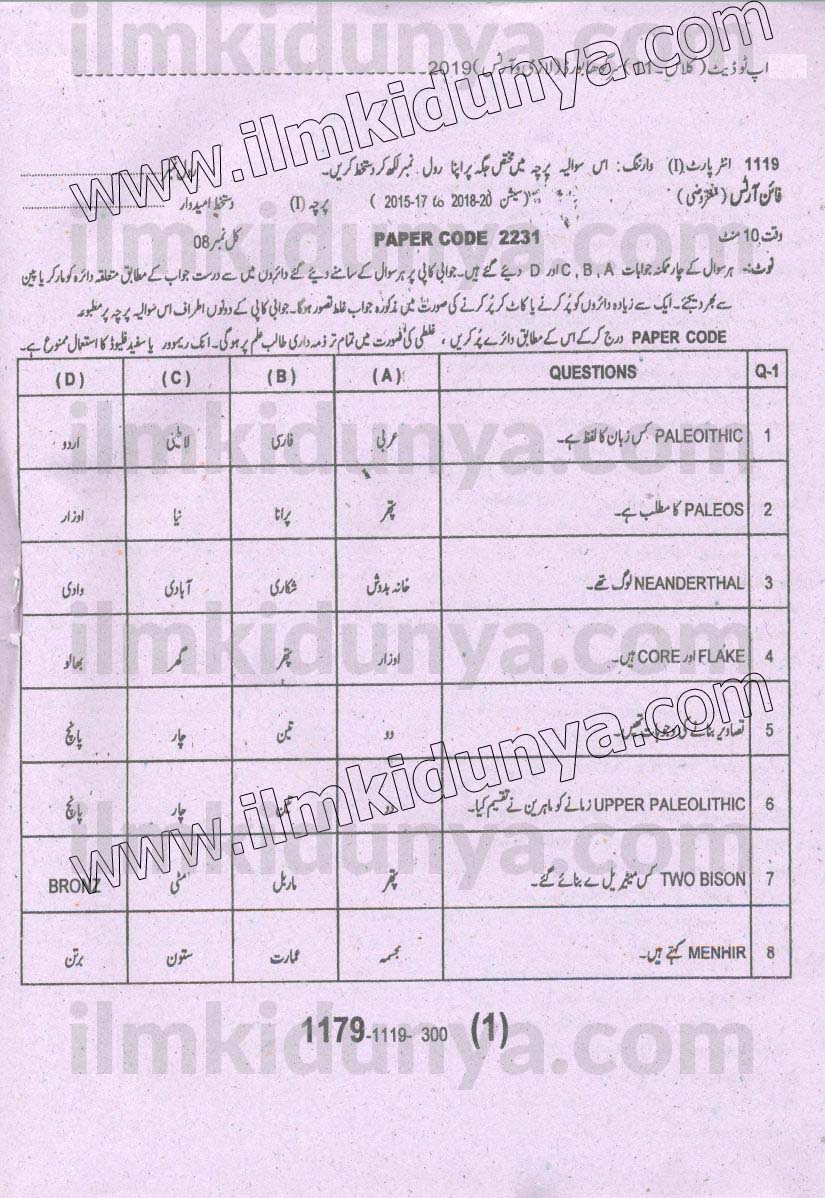 www.ilmkidunya.com
اپ ٹوڈیٹ (کلاس - 11) 2019
1119 انٹر پارٹ (I) وارننگ: اس سوالیہ پرچہ میں مختص جگہ پر اپنا رول نمبر لکھ کر دستخط کریں۔
فائن آرٹس (معروضی) (سیشن 2015-17 to 2018-20) پرچہ (I) دستخط امیدوار
وقت 10 منٹ PAPER CODE 2231 کل نمبر 08
نوٹ:- ہر سوال کے چار ممکنہ جوابات C , B , A اور D دیئے گئے ہیں۔ جوابی کاپی پر ہر سوال کے سامنے دیئے گئے دائروں میں سے درست جواب کے مطابق متعلقہ دائرہ کو مارکر یا پین
سے بھر دیجئے۔ ایک سے زیادہ دائروں کو پُر کرنے یا کاٹ کر پُر کرنے کی صورت میں مذکورہ جواب غلط تصور ہوگا۔ جوابی کاپی کے دونوں اطراف اس سوالیہ پرچہ پر مطبوعہ
PAPER CODE درج کر کے اس کے مطابق دائرے پُر کریں ، غلطی کی صورت میں تمام تر ذمہ داری طالب علم پر ہوگی۔ انک ریموور یا سفید فلیوڈ کا استعمال ممنوع ہے۔
Q-1 QUESTIONS (A) (B) (C) (D)
1 PALEOITHIC کس زبان کا لفظ ہے۔ عربی فارسی لاطینی اردو
2 PALEOS کا مطلب ہے۔ پتھر پرانا نیا اوزار
3 NEANDERTHAL لوگ تھے۔ خانہ بدوش شکاری آبادی وادی
4 FLAKE اور CORE ہیں۔ اوزار پتھر گھر بھالو
5 تصاویر بنانے کی وجوہات تھیں۔ دو تین چار پانچ
6 UPPER PALEOLITHIC زمانے کو ماہرین نے تقسیم کیا۔ دو تین چار پانچ
7 TWO BISON کس میٹیریل سے بنائے گئے۔ پتھر ماربل مٹی BRONZ
8 MENHIR کہتے ہیں۔ مجسمہ عمارت ستون برتن
www.ilmkidunya.com
1179-1119- 300 (1)
ilmkidunya.com